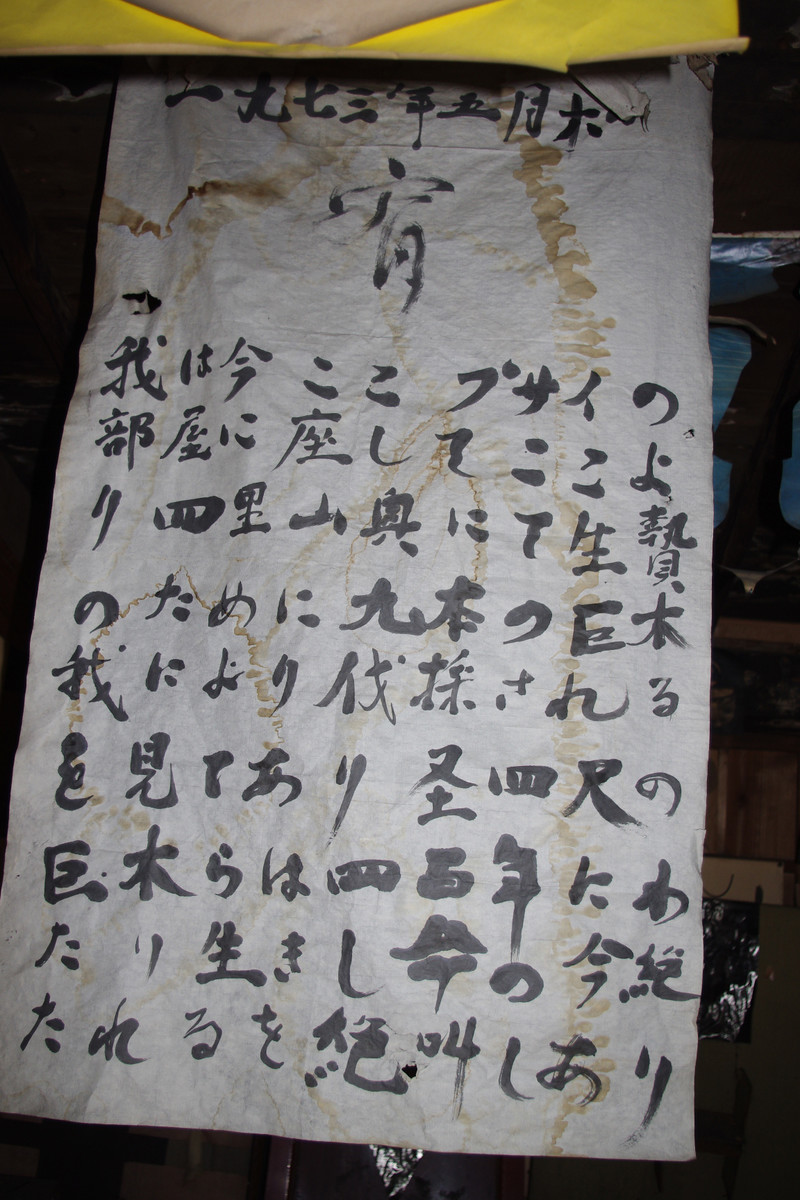 一九七三年五月木
宵
我は今ここブサイの
部屋に座してここよ
り四里山奥にて生贄
のために九本の巨木
我により伐採される
を見てあり圣四尺の
巨木らは四百年にわ
たり生きし命の今絶
たれるを絶叫しあり